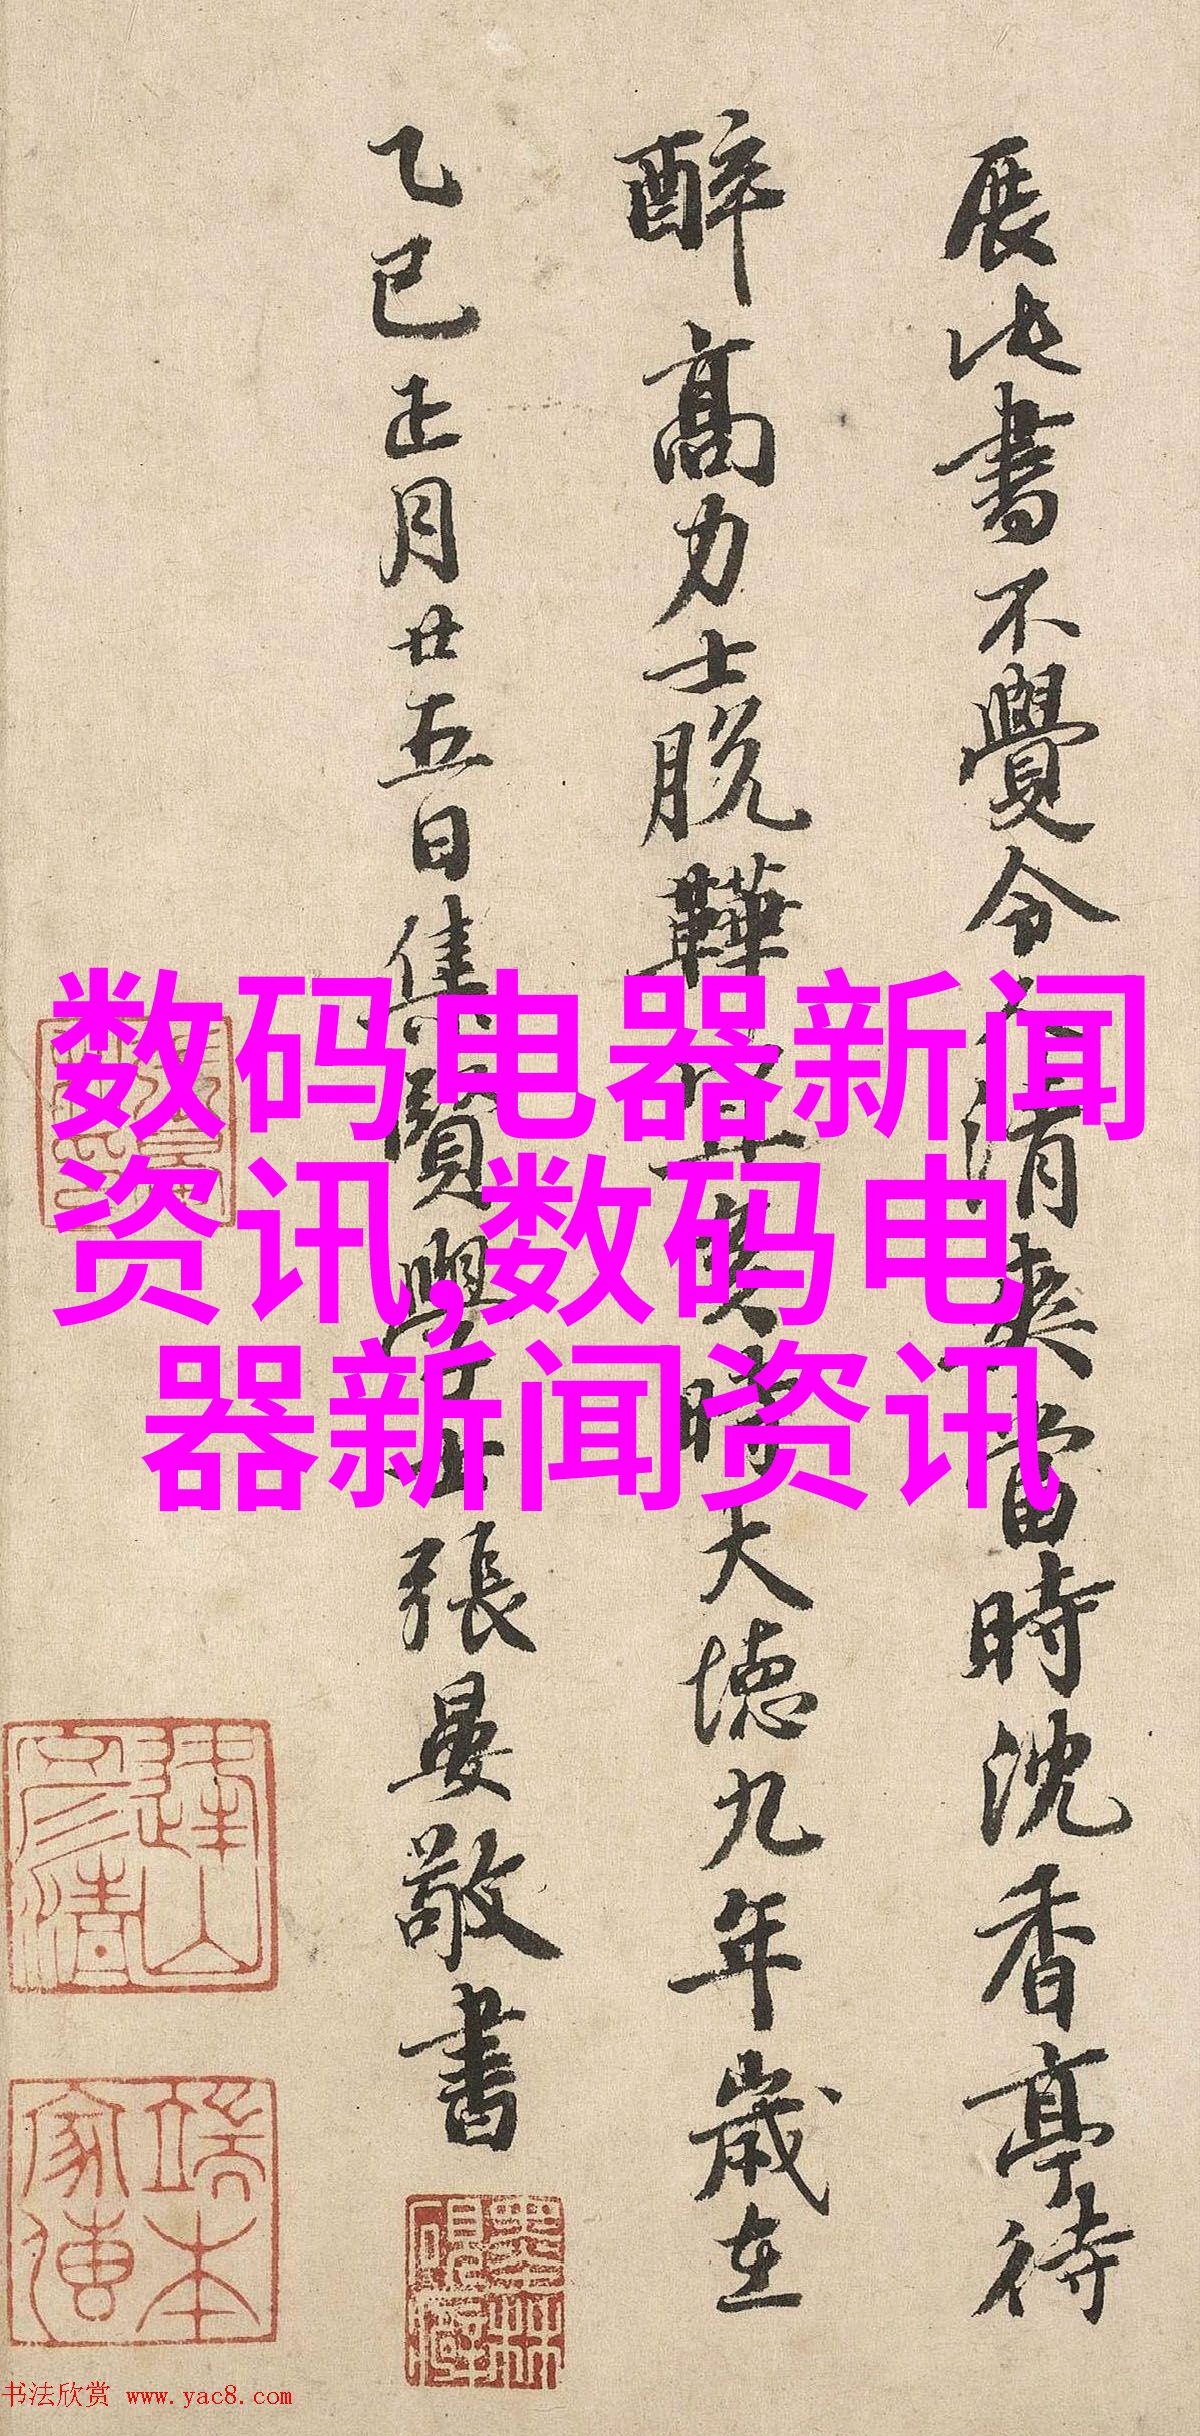 展此書不覺令人清爽當時沈香亭待
醉高力士脫鞾時大德九年歲在
乙巳正月廿五日集賢學士張晏敬書
数码电器新闻
资讯,数码电
器新闻资讯
端本
家傳
书法欣赏 www.yac8.com